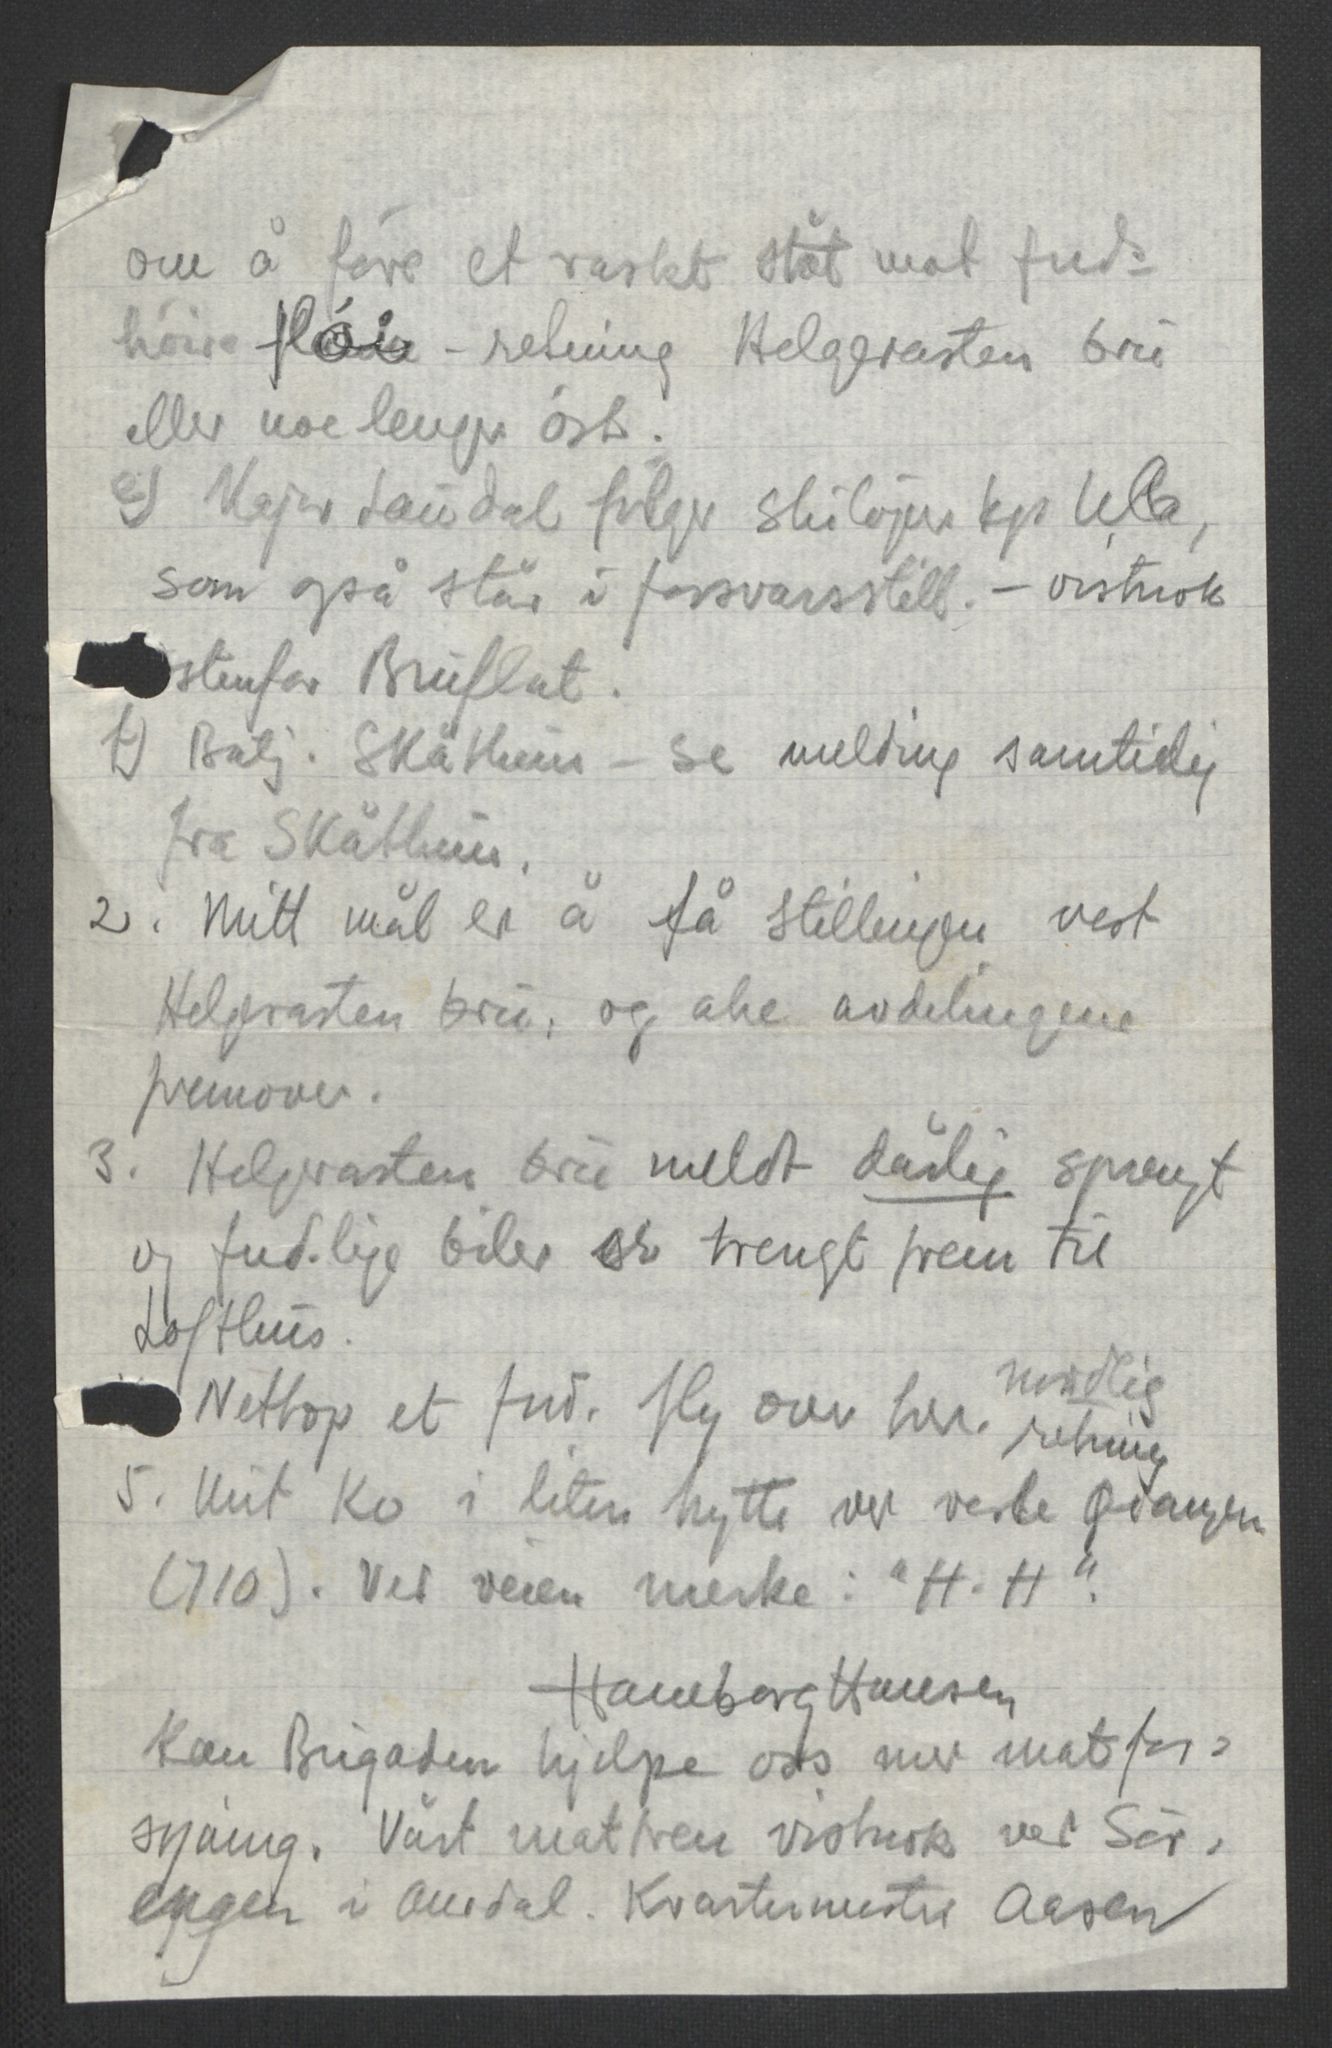 om å före et raskt støt mot fiend-
höire fløi - retning Helgerasten bru
eller noe lenger öst.
e) Major Landal følger skiløper kp Ula,
som også står i forsvarsstill. - vistnok
stenfor Bruflat.
f) Batj. Skåthun - se melding samtidig
fra Skåthun.
2. Mitt mål er å få stillingen vest
Helgerasten bru, og alle avdelingene
fremover.
3. Helgerasten bru meldt dårlig sprengt
og fiendlige biler er trengt frem til
Lofthus.
Nettop et fiend. fly over her. nordlig
retning
5. Mit Ko i liten hytte ved vestre
(710). Ved veien merke: "H-H".
Hamborg Hansen
Kan Brigaden hjelpe oss med matfor-
syning. Vårt mattren vistnok ved Sör-
engen i Aurdal. Kvartermester Aasen